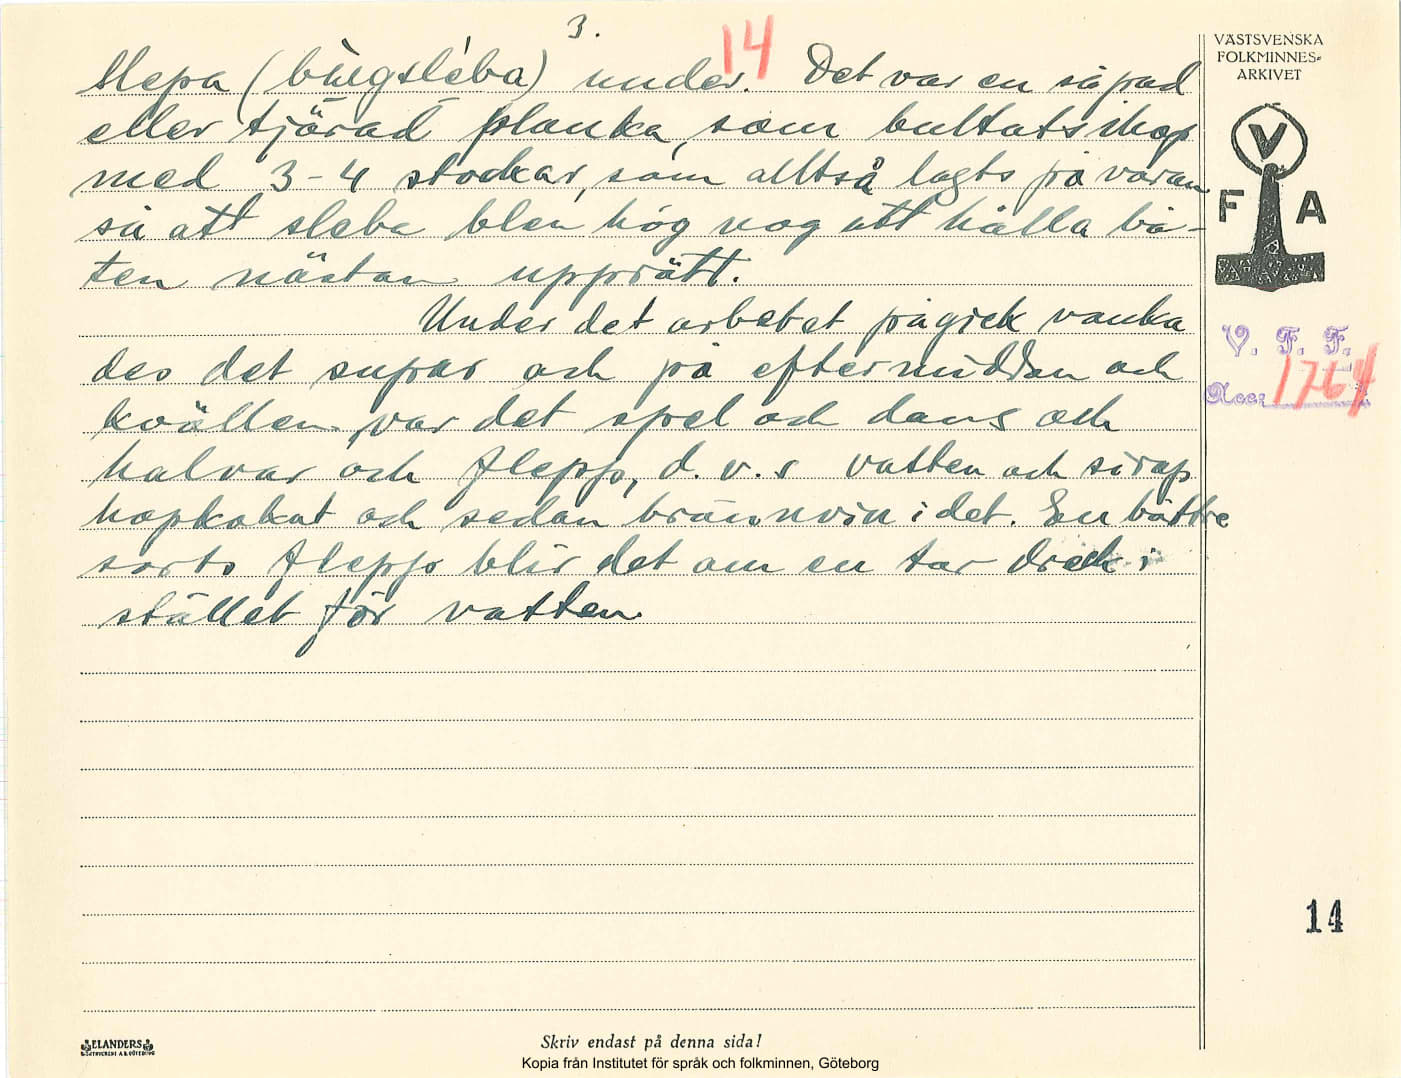 3.
14
slepa (bu̇gsléba) under. Det var en såpad
eller tjärad planka, som bultats ihop
med 3-4 stockar, som alltså lagts på varan
så att sleba blev hög nog att hålla bå-
ten nästan upprätt.
Under det arbetet pågick vanka
des det supar och på eftermiddan och
kvällen var det spel och dans och
halvar och flepp, d.v.s vatten och sirap
hopkokat och sedan brännvin i det. En bättre
sorts flepp blir det om en tar drick i
stället för vatten.
VÄSTSVENSKA
FOLKMINNES-
ARKIVET
V
F A
V. F. F.
Acc: 1764
14
ELANDERS
Skriv endast på denna sida!
Kopia från Institutet för språk och folkminnen, Göteborg